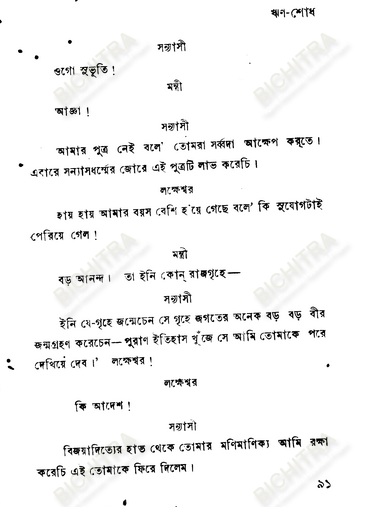 ঋণ-শোধ
সন্ন্যাসী
ওগো সুভূতি !
মন্ত্রী
আজ্ঞা !
সন্ন্যাসী
আমার পুত্র নেই বলে' তোমরা সর্ব্বদা আক্ষেপ করতে।
এবারে সন্ন্যাসধর্ম্মের জোরে এই পুত্রটি লাভ করেচি।
লক্ষেশ্বর
হায় হায় আমার বয়স বেশি হ'য়ে গেছে বলে' কি সুযোগটাই
পেরিয়ে গেল !
মন্ত্রী
বড় আনন্দ। তা ইনি কোন্ রাজগৃহে—
সন্ন্যাসী
ইনি যে-গৃহে জন্মেচেন সে গৃহে জগতের অনেক বড় বড় বীর
জন্মগ্রহণ করেচেন— পুরাণ ইতিহাস খুঁজে সে আমি তোমাকে পরে
দেখিয়ে দেব।' লক্ষেশ্বর !
লক্ষেশ্বর
কি আদেশ !
সন্ন্যাসী
বিজয়াদিত্যের হাত থেকে তোমার মণিমাণিক্য আমি রক্ষা
করেচি এই তোমাকে ফিরে দিলেম।
৯১
BICHITRA
BICHITRA
BICHITRA
BICHITRA
BICHITRA
BICHITRA